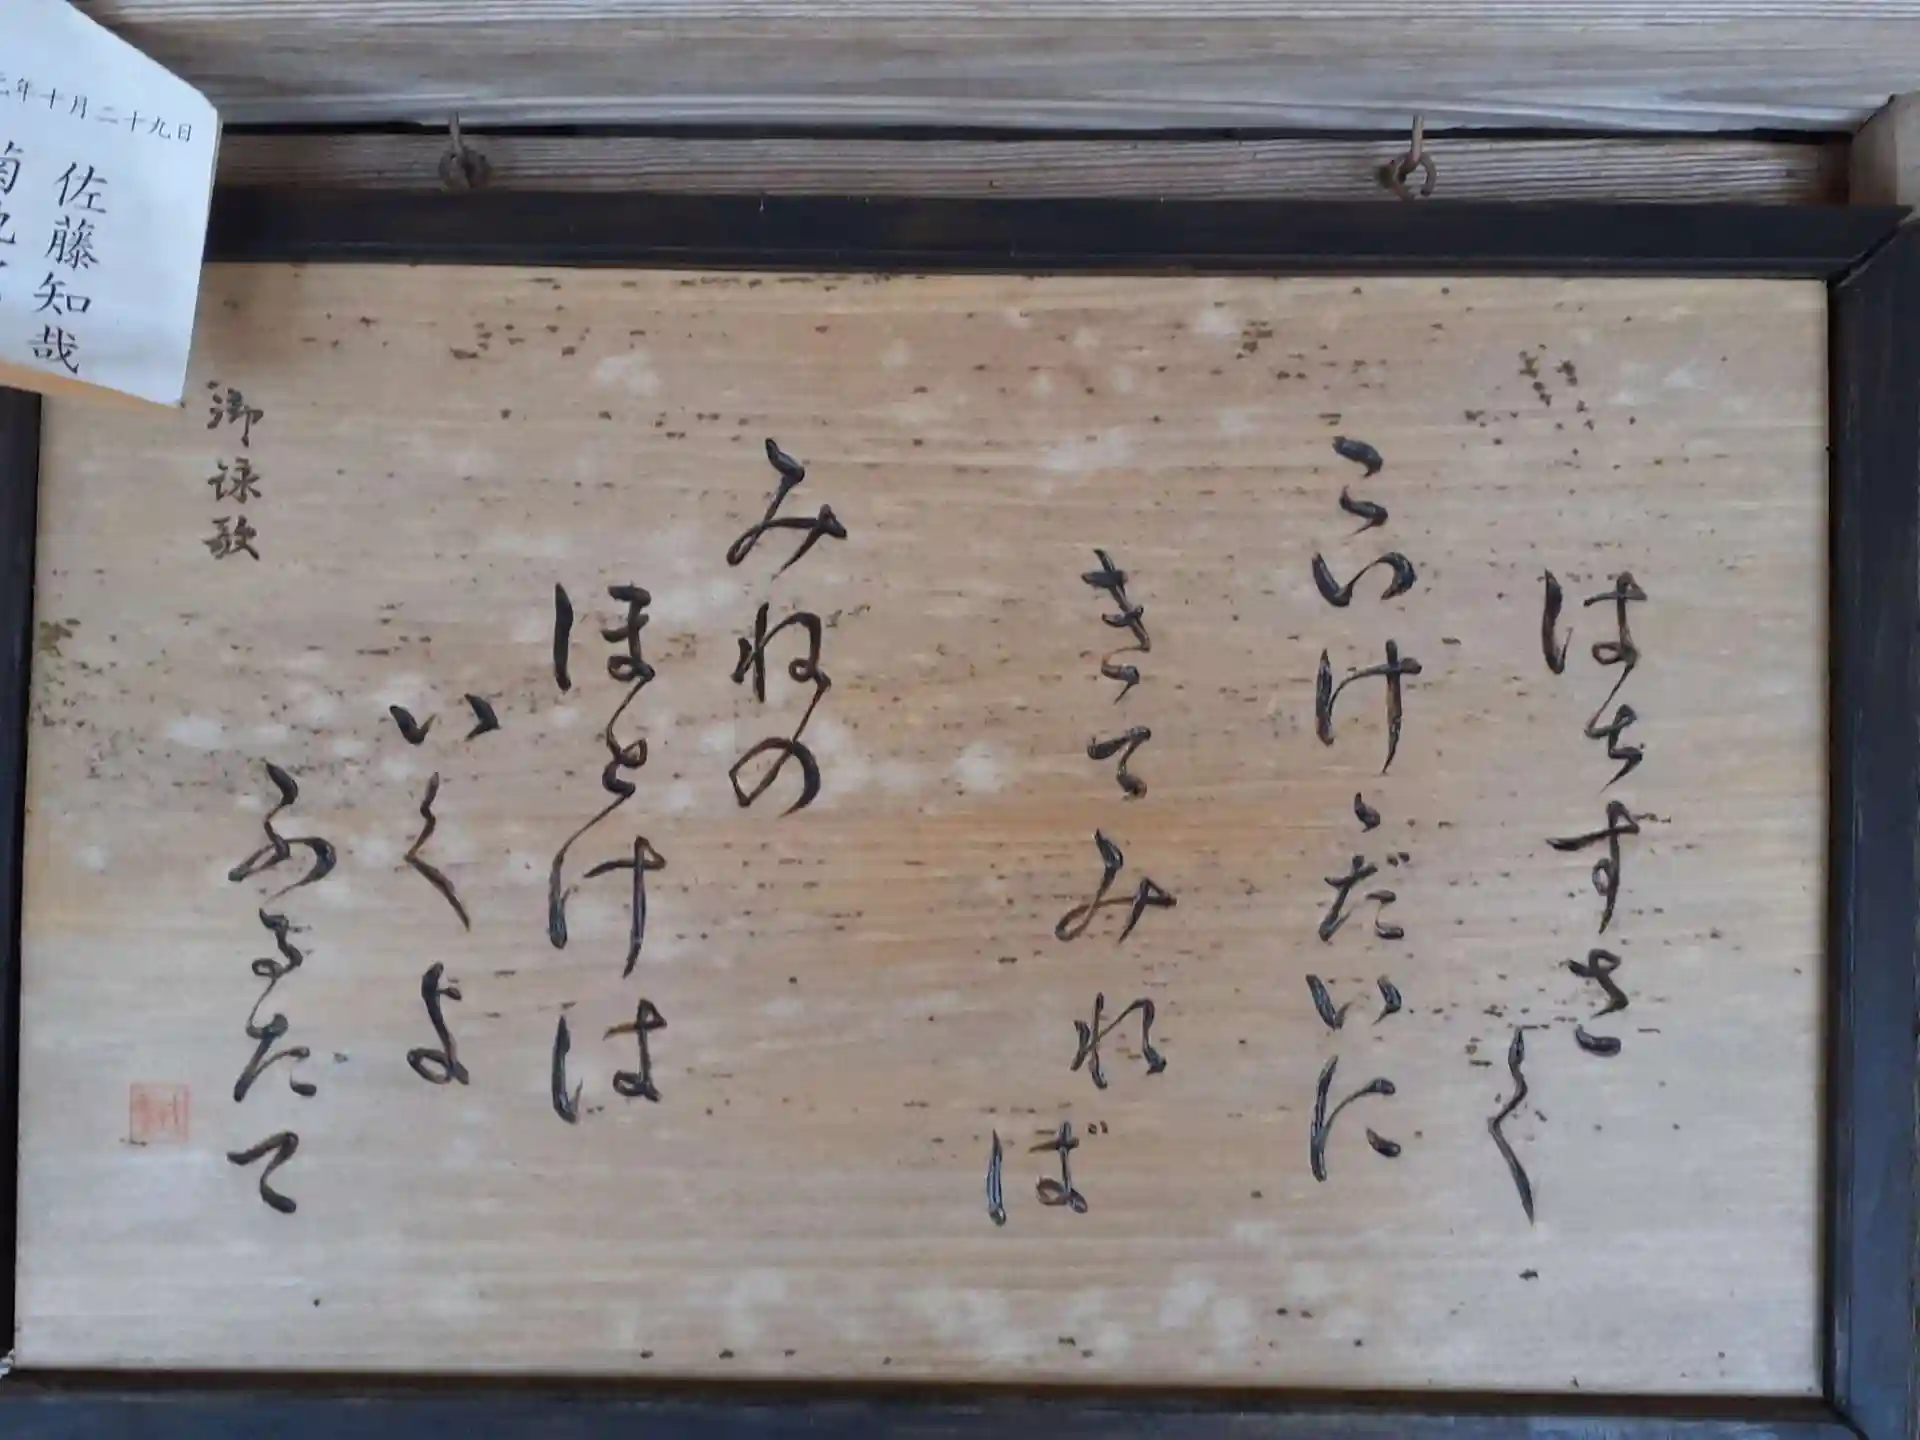 はちすさく
こいけゞだいに
きてみれば
みねの
ほとけは
いくよ
ふるたて
御詠歌
元年十月二十九日
佐藤知哉